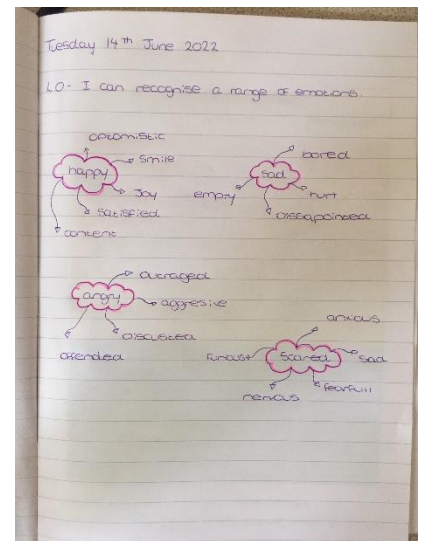 Tuesday 14th June 2022
LO- I can recognise a range of emotions.
optomistic
smile
happy
Joy
satisfied
content
bored
sad
empty
hurt
Dissapointed
outraged
angry
aggresive
offended
anxious
scared
sad
fearfull
nervous